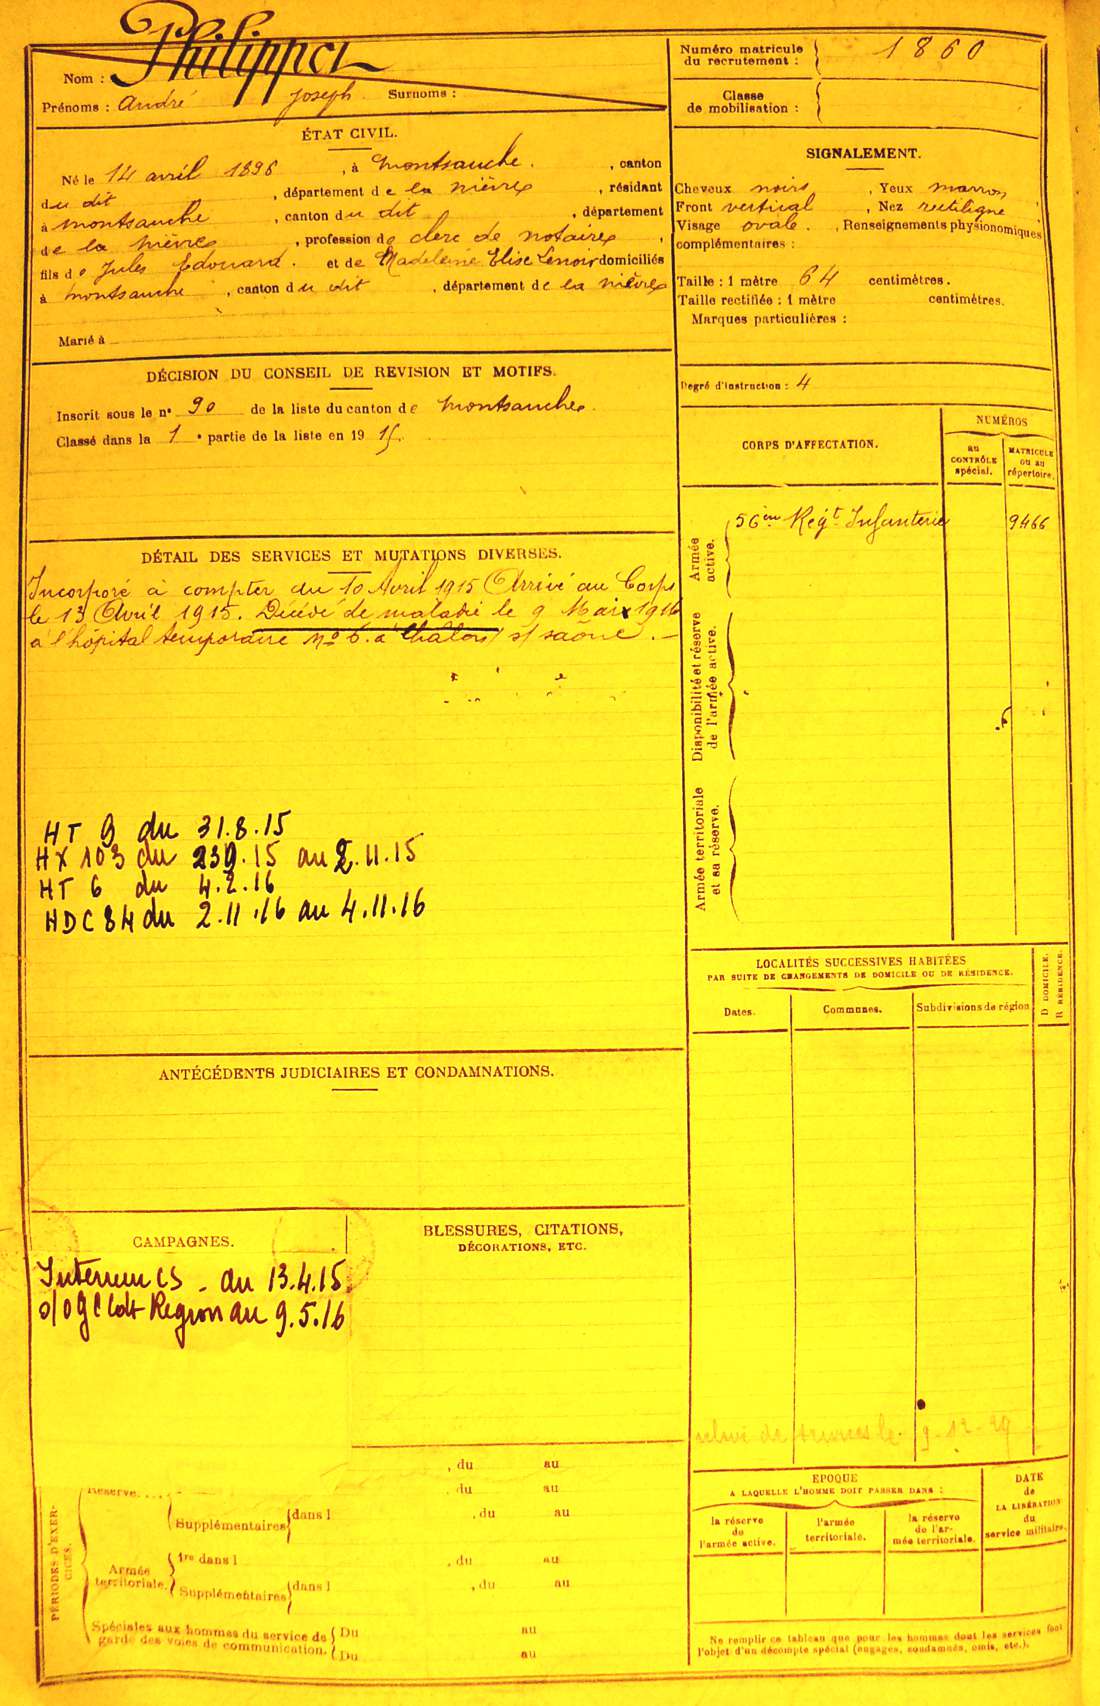 Nom : Philippot
Prénoms : André Joseph Surnoms :
Numéro matricule du recrutement : 1860
Classe de mobilisation :
ÉTAT CIVIL.
Né le 14 avril 1896, à Montsauche, canton
du dit, département de la Nièvre, résidant
à Montsauche, canton du dit, département
de la Nièvre, profession de clerc de notaire,
fils de Jules Edouard et de Madeleine Elise Lenoir domiciliés
à Montsauche, canton du dit, département de la Nièvre
Marié à
SIGNALEMENT.
Cheveux noirs, Yeux marron
Front vertical, Nez rectiligne
Visage ovale., Renseignements physionomiques
complémentaires :
Taille : 1 mètre 64 centimètres.
Taille rectifiée : 1 mètre centimètres.
Marques particulières :
Degré d'instruction : 4
DÉCISION DU CONSEIL DE REVISION ET MOTIFS.
Inscrit sous le n° 90 de la liste du canton de Montsauche
Classé dans la 1e partie de la liste en 1915
CORPS D'AFFECTATION.
NUMÉROS
au CONTRÔLE spécial.
MATRICULE ou au répertoire.
Armée active.
56em Regt Infanterie 9466
Disponibilité et réserve de l'armée active.
Armée territoriale et sa réserve.
DÉTAIL DES SERVICES ET MUTATIONS DIVERSES.
Incorporé à compter du 10 Avril 1915 Arrivé au Corps
le 13 Avril 1915. Décédé de maladie le 9 Mai 1916
à l'hôpital temporaire No 6 à Châlons s/ saône. –
HT 9 du 31.8.15
HX 103 du 239.15 au 2.11.15
HT 6 du 4.2.16
HDC 84 du 2.11.16 au 4.11.16
LOCALITÉS SUCCESSIVES HABITÉES
PAR SUITE DE CHANGEMENTS DE DOMICILE OU DE RÉSIDENCE.
Dates.
Communes.
Subdivisions de région
D DOMICILE.
R RÉSIDENCE.
ANTÉCÉDENTS JUDICIAIRES ET CONDAMNATIONS.
CAMPAGNES.
Interieur CS - du 13.4.15
Region au 9.5.16
BLESSURES, CITATIONS,
DÉCORATIONS, ETC.
de services le 9-12-29
PÉRIODES D'EXERCICES.
, du au
Réserve.... , du au
Supplémentaires dans l , du au
Armée territoriale.
1re dans l , du au
Supplémentaires dans l , du au
Spéciales aux hommes du service de garde des voies de communication.
Du au
Du au
EPOQUE
A LAQUELLE L'HOMME DOIT PASSER DANS :
la réserve de l'armée active.
l'armée territoriale.
la réserve de l'armée territoriale.
DATE de LA LIBÉRATION du service militaire.
Ne remplir ce tableau que pour les hommes dont les services font
l'objet d'un décompte spécial (engagés, condamnés, omis, etc.).